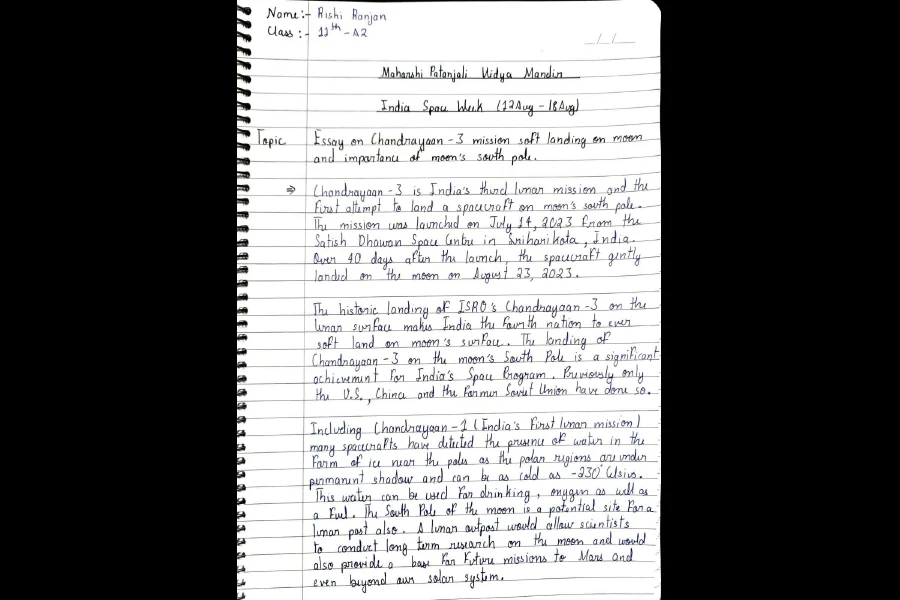 Name:- Rishi Ranjan
Class:- 11th-A2
_/_/__
Maharshi Patanjali Vidya Mandir
India Space Week (12Aug-18Aug)
Topic Essay on Chandrayaan-3 mission soft landing on moon
and importance of moon's south pole.
⇒ Chandrayaan-3 is India's third lunar mission and the
first attempt to land a spacecraft on moon's south pole.
The mission was launched on July 14, 2023 from the
Satish Dhawan Space Centre in Sriharikota, India.
Over 40 days after the launch, the spacecraft gently
landed on the moon on August 23, 2023.
The historic landing of ISRO's Chandrayaan-3 on the
lunar surface makes India the fourth nation to ever
soft land on moon's surface. The landing of
Chandrayaan-3 on the moon's South Pole is a significant
achievement for India's Space Program. Previously only
the U.S., China and the Former Soviet Union have done so.
Including Chandrayaan-1 (India's First lunar mission)
many spacecrafts have detected the presence of water in the
form of ice near the poles as the polar regions are under
permanent shadow and can be as cold as -230° Celsius.
This water can be used for drinking, oxygen as well as
a fuel. The South Pole of the moon is a potential site for a
lunar post also. A lunar outpost would allow scientists
to conduct long term research on the moon and would
also provide a base for future missions to Mars and
even beyond our solar system.